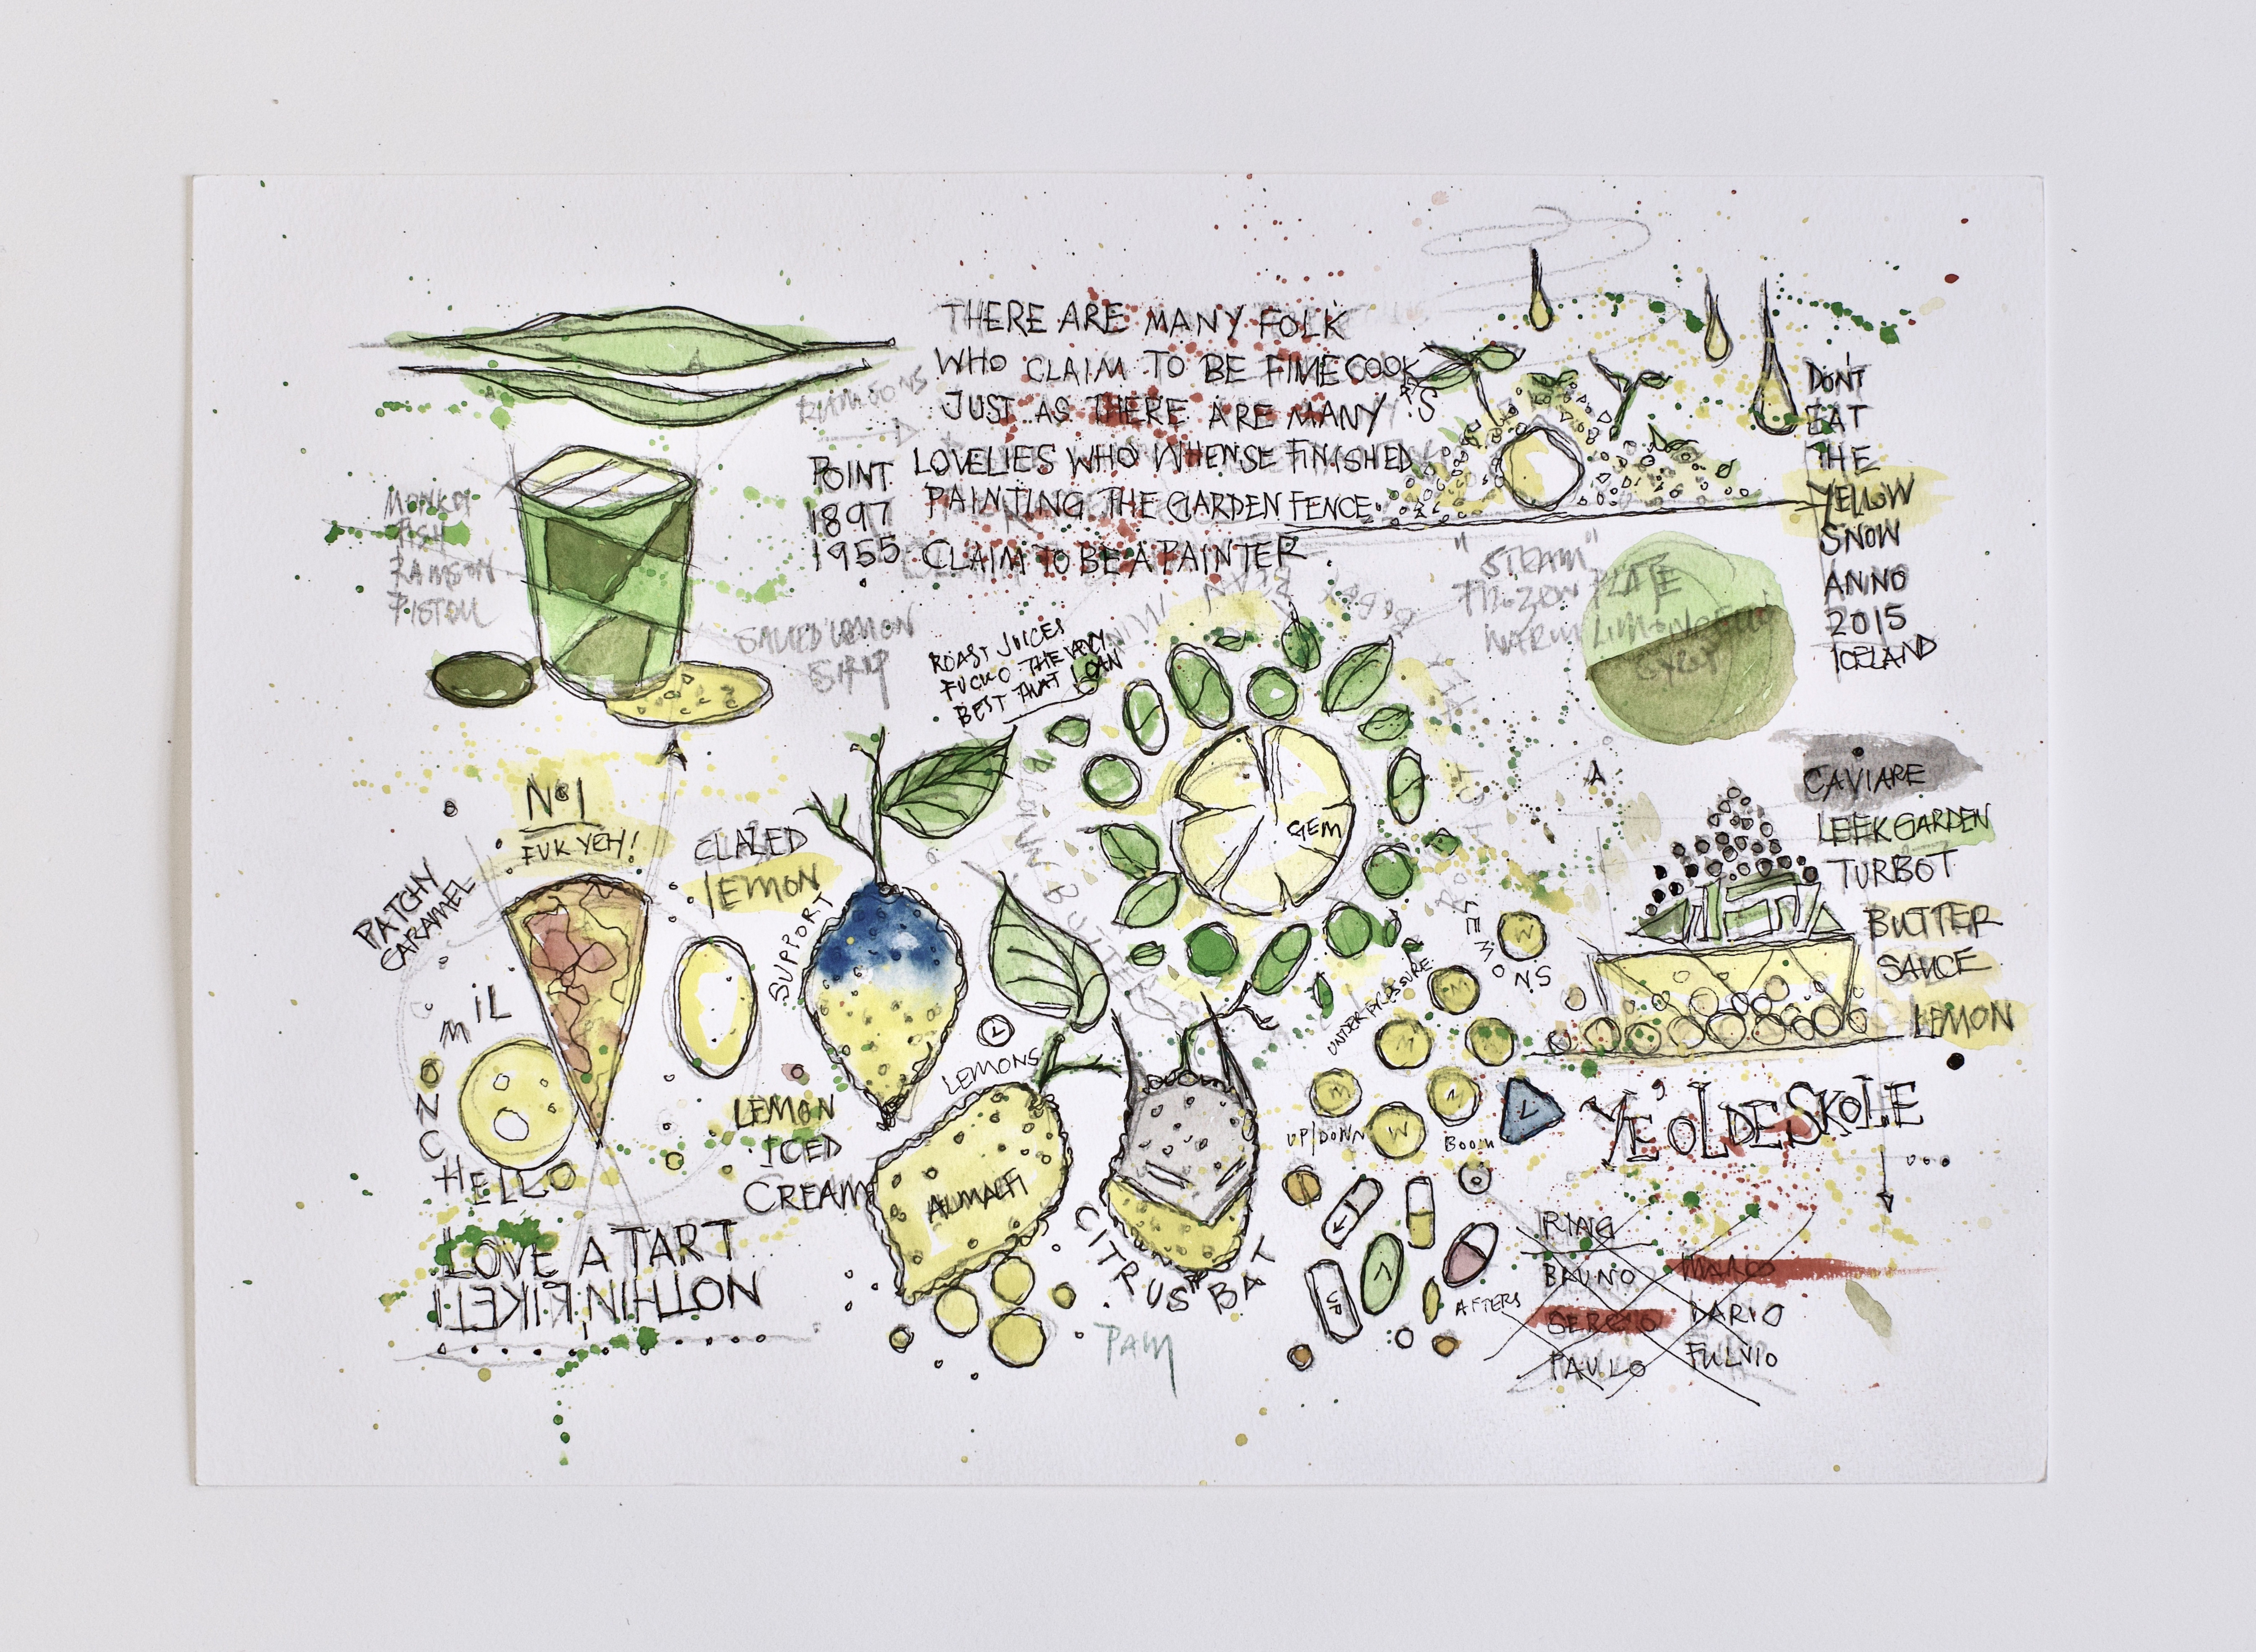 THERE ARE MANY FOLK
WHO CLAIM TO BE FINE COOK'S
JUST AS THERE ARE MANY
LOVELIES WHO WHENSE FINISHED
PAINTING THE GARDEN FENCE
CLAIM TO BE A PAINTER.
POINT
1897
1955
DON'T
EAT
THE
YELLOW
SNOW
ANNO
2015
ICELAND
"STEAM"
PLATE
WARM LIMONCELLO
MONK
FISH
RAMSON
PISTOU
SALTED LEMON
ROAST JUICES
BEST THAT CAN
GEM
N°1
FUK YEH!
PATCHY
CARAMEL
LEMON
SUPPORT
mil
ONC
HELLO
LEMON
ICED
CREAM
LOVE A TART
NOTHIN
L
LEMONS
ALMALFI
CITRUS BAT
PAM
LEMONS
UNDER PRESSURE
W
M
W
UP/DOWN
BOOM
L
UP
AFTERS
CAVIARE
LEEK GARDEN
TURBOT
BUTTER
SAUCE
LEMON
YE'OLDE SKOLE
RING
BRUNO
MARCO
SERGIO
DARIO
PAULO
FULVIO